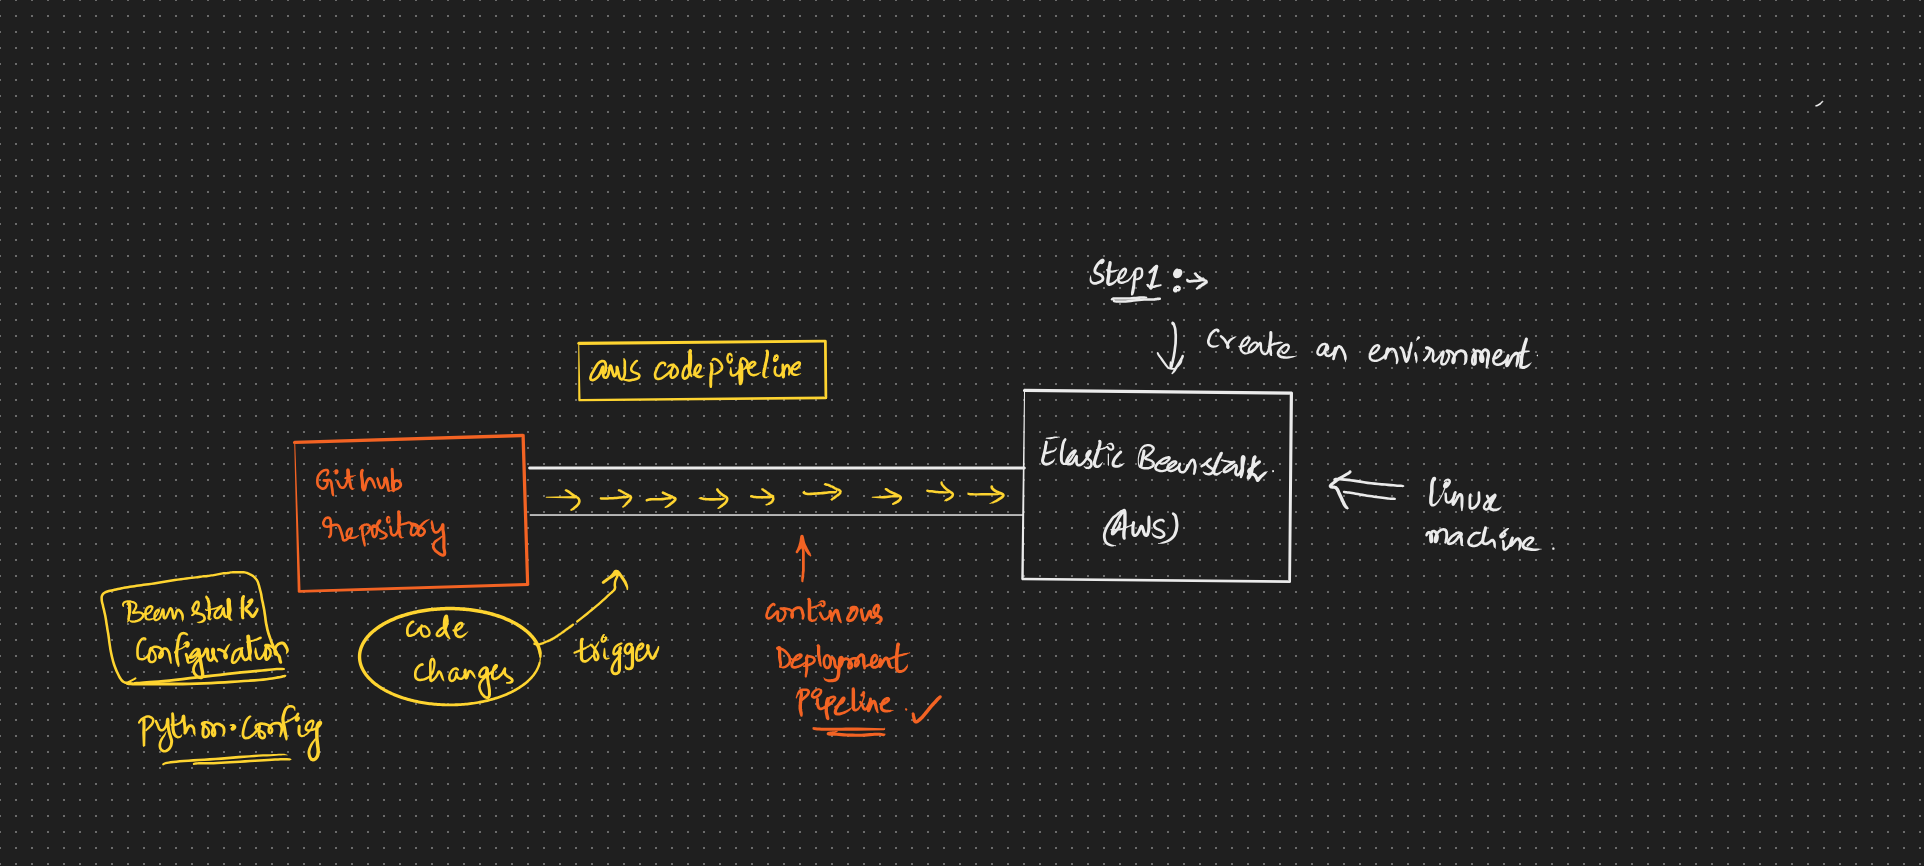 Step1 :→
Create an environment.
aws codepipeline
Github
repository
Elastic Beanstalk.
(AWS)
linux
machine.
Beanstalk
Configuration
python.config
code
changes
trigger
continous
Deployment
pipeline.